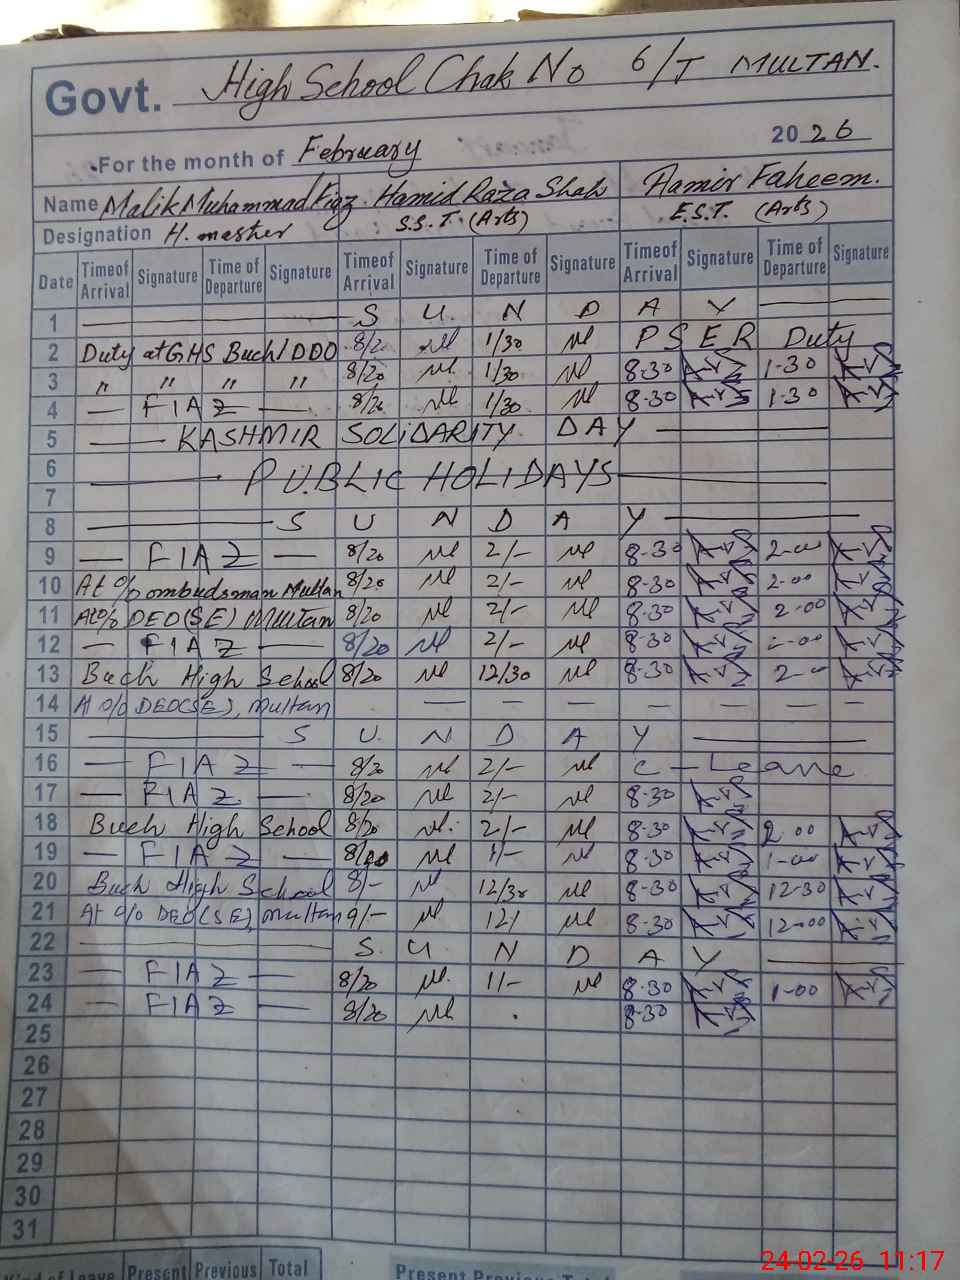 Govt. High School Chak No 6/T MULTAN.
For the month of February 2026
Name Malik Muhammad Fiaz. Hamid Raza Shah Aamir Faheem.
Designation H. master S.S.T. (Arts) E.S.T. (Arts)
Date Time of Arrival Signature Time of Departure Signature Time of Arrival Signature Time of Departure Signature Time of Arrival Signature Time of Departure Signature
1 S U N D A Y
2 Duty at G.HS Buch/DDO 8/20 1/30 PSER Duty
3 " " " " 8/20 1/30 8-30 1-30
4 — FIAZ — 8/20 1/30 8-30 1-30
5 KASHMIR SOLIDARITY DAY
6 PUBLIC HOLIDAYS
7
8 S U N D A Y
9 — FIAZ — 8/20 2/- 8-30 2-00
10 At O/o ombudsman Multan 8/20 2/- 8-30 2-00
11 At O/o DEO(SE) Multan 8/20 2/- 8-30 2-00
12 — FIAZ — 8/20 2/- 8-30 2-00
13 Buch High School 8/20 12/30 8-30
14 At O/o DEO(SE), Multan — — — — — — —
15 S U N D A Y
16 — FIAZ — 8/20 2/- C-Leave
17 — FIAZ — 8/20 2/- 8-30
18 Buch High School 8/20 2/- 8-30 2-00
19 — FIAZ — 8/20 1/- 8-30 1-00
20 Buch High School 8/- 12/30 8-30 12-30
21 At O/o DEO(SE), Multan 9/- 12/ 8-30 12-00
22 S U N D A Y
23 — FIAZ — 8/20 1/- 8-30 1-00
24 — FIAZ — 8/20 8-30
25
26
27
28
29
30
31
Kind of Leave Present Previous Total Present Previous Total
24-02-26 11:17